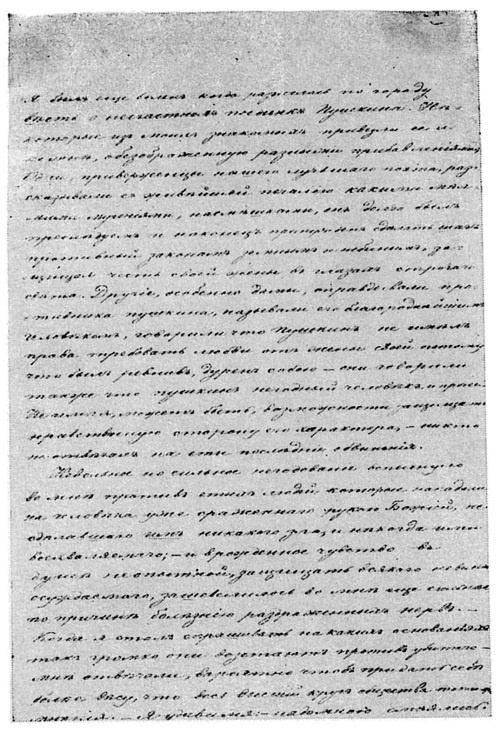 Я былъ еще боленъ когда разнеслась по городу
вѣсть о несчастномъ поединкѣ Пушкина. Нѣ-
которые изъ моихъ знакомыхъ привезли ее и
комнѣ, обезображенную разными прибавленіями.
Одни, приверженцы нашего лучшаго поэта, раз-
сказывали съ живѣйшей печалью какими мел-
кими мученіями, насмѣшками, онъ долго былъ
преслѣдуемъ и наконецъ принужденъ сдѣлать шагъ
противный законамъ земнымъ и небеснымъ, за-
щищая честь своей жены въ глазахъ строгаго
свѣта. Другіе, особенно дамы, оправдывали про-
тивника Пушкина, называли его благороднѣйшимъ
человѣкомъ, говорили что Пушкинъ не имѣлъ
права требовать любви отъ жены своей, потому
что былъ ревнивъ, дуренъ собою – они говорили
также что Пушкинъ негодный человѣкъ, и прочее.
Не имѣя, можетъ быть, возможности защищать
нравственную сторону его характера, – никто
не отвѣчалъ на эти послѣднія обвиненія.
Невольное но сильное негодованіе вспыхнуло
во мнѣ противъ этихъ людей которые нападали
на человѣка уже сраженнаго рукою Божіей, не
сдѣлавшаго имъ никакого зла, и нѣкогда ими
восхваляемаго; – и врожденное чувство въ
душѣ неопытной, защищать всякаго невинно
осуждаемаго, зашевелилось во мнѣ еще сильнѣе
по причинѣ болѣзнію раздраженныхъ нервъ. –
Когда я сталъ спрашивать на какихъ основаніяхъ
такъ громко они возстаютъ противъ убитаго –
мнѣ отвѣчали, вѣроятно чтобъ придать себѣ
болѣе вѣсу, что весь высшій кругъ общества такого
мнѣнія. – Я удивился: – надо мною смѣялись.